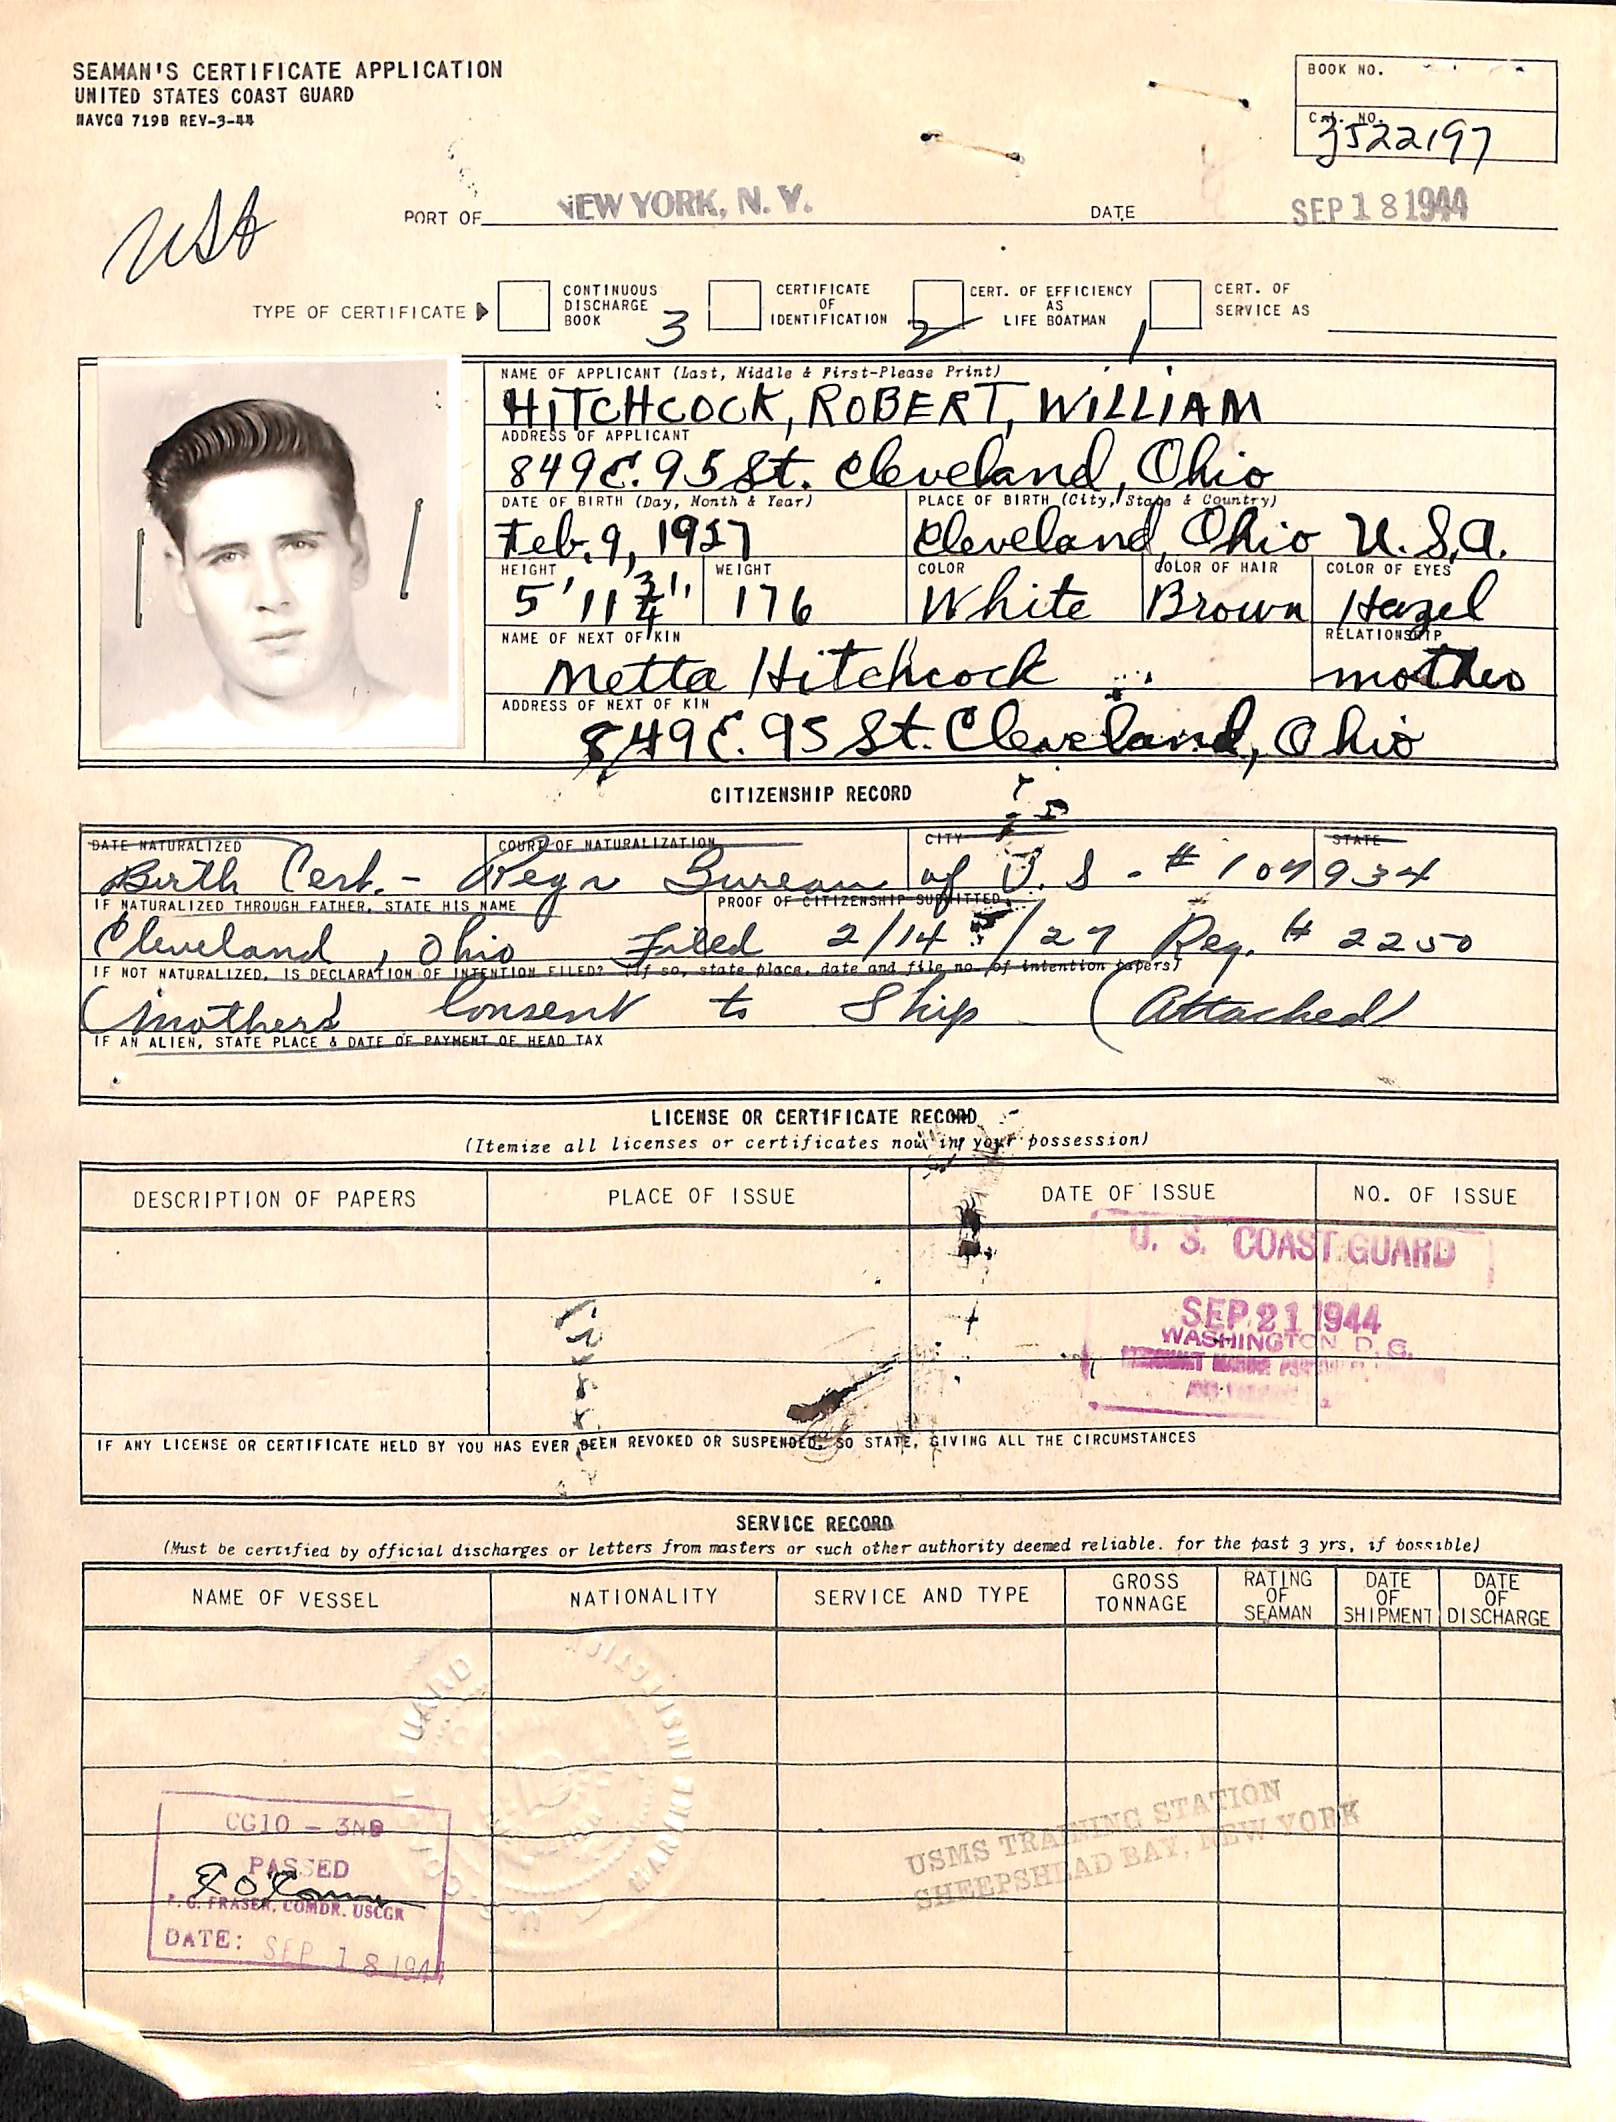 SEAMAN'S CERTIFICATE APPLICATION
UNITED STATES COAST GUARD
NAVCG 719B REV-3-44
BOOK NO.
NO.
3522197
USA
PORT OF NEW YORK, N. Y. DATE SEP 18 1944
TYPE OF CERTIFICATE
CONTINUOUS DISCHARGE BOOK 3
CERTIFICATE OF IDENTIFICATION 2
CERT. OF EFFICIENCY AS LIFE BOATMAN 1
CERT. OF SERVICE AS
NAME OF APPLICANT (Last, Middle & First-Please Print)
HITCHCOCK, ROBERT, WILLIAM
ADDRESS OF APPLICANT
849 E. 95 St. Cleveland, Ohio
DATE OF BIRTH (Day, Month & Year) PLACE OF BIRTH (City, State & Country)
Feb. 9, 1927 Cleveland, Ohio U.S.A.
HEIGHT WEIGHT COLOR COLOR OF HAIR COLOR OF EYES
5' 11 3/4" 176 White Brown Hazel
NAME OF NEXT OF KIN RELATIONSHIP
Metta Hitchcock mother
ADDRESS OF NEXT OF KIN
849 E. 95 St. Cleveland, Ohio
CITIZENSHIP RECORD
DATE NATURALIZED COURT OF NATURALIZATION CITY STATE
Birth Cert. - Regr Bureau of U.S. - # 109934
IF NATURALIZED THROUGH FATHER, STATE HIS NAME PROOF OF CITIZENSHIP SUBMITTED
Cleveland, Ohio Filed 2/14/27 Reg. # 2250
IF NOT NATURALIZED, IS DECLARATION OF INTENTION FILED? (If so, state place, date and file no. of intention papers)
(Mothers Consent to Ship (Attached)
IF AN ALIEN, STATE PLACE & DATE OF PAYMENT OF HEAD TAX
LICENSE OR CERTIFICATE RECORD
(Itemize all licenses or certificates now in your possession)
DESCRIPTION OF PAPERS PLACE OF ISSUE DATE OF ISSUE NO. OF ISSUE
U. S. COAST GUARD
SEP 21 1944
WASHINGTON D. C.
IF ANY LICENSE OR CERTIFICATE HELD BY YOU HAS EVER BEEN REVOKED OR SUSPENDED, SO STATE, GIVING ALL THE CIRCUMSTANCES
SERVICE RECORD
(Must be certified by official discharges or letters from masters or such other authority deemed reliable. for the past 3 yrs, if possible)
NAME OF VESSEL NATIONALITY SERVICE AND TYPE GROSS TONNAGE RATING OF SEAMAN DATE OF SHIPMENT DATE OF DISCHARGE
CG10 - 3ND
PASSED
P. G. FRASER, COMDR. USCGR
DATE: SEP 18 1944
USMS TRAINING STATION
SHEEPSHEAD BAY, NEW YORK